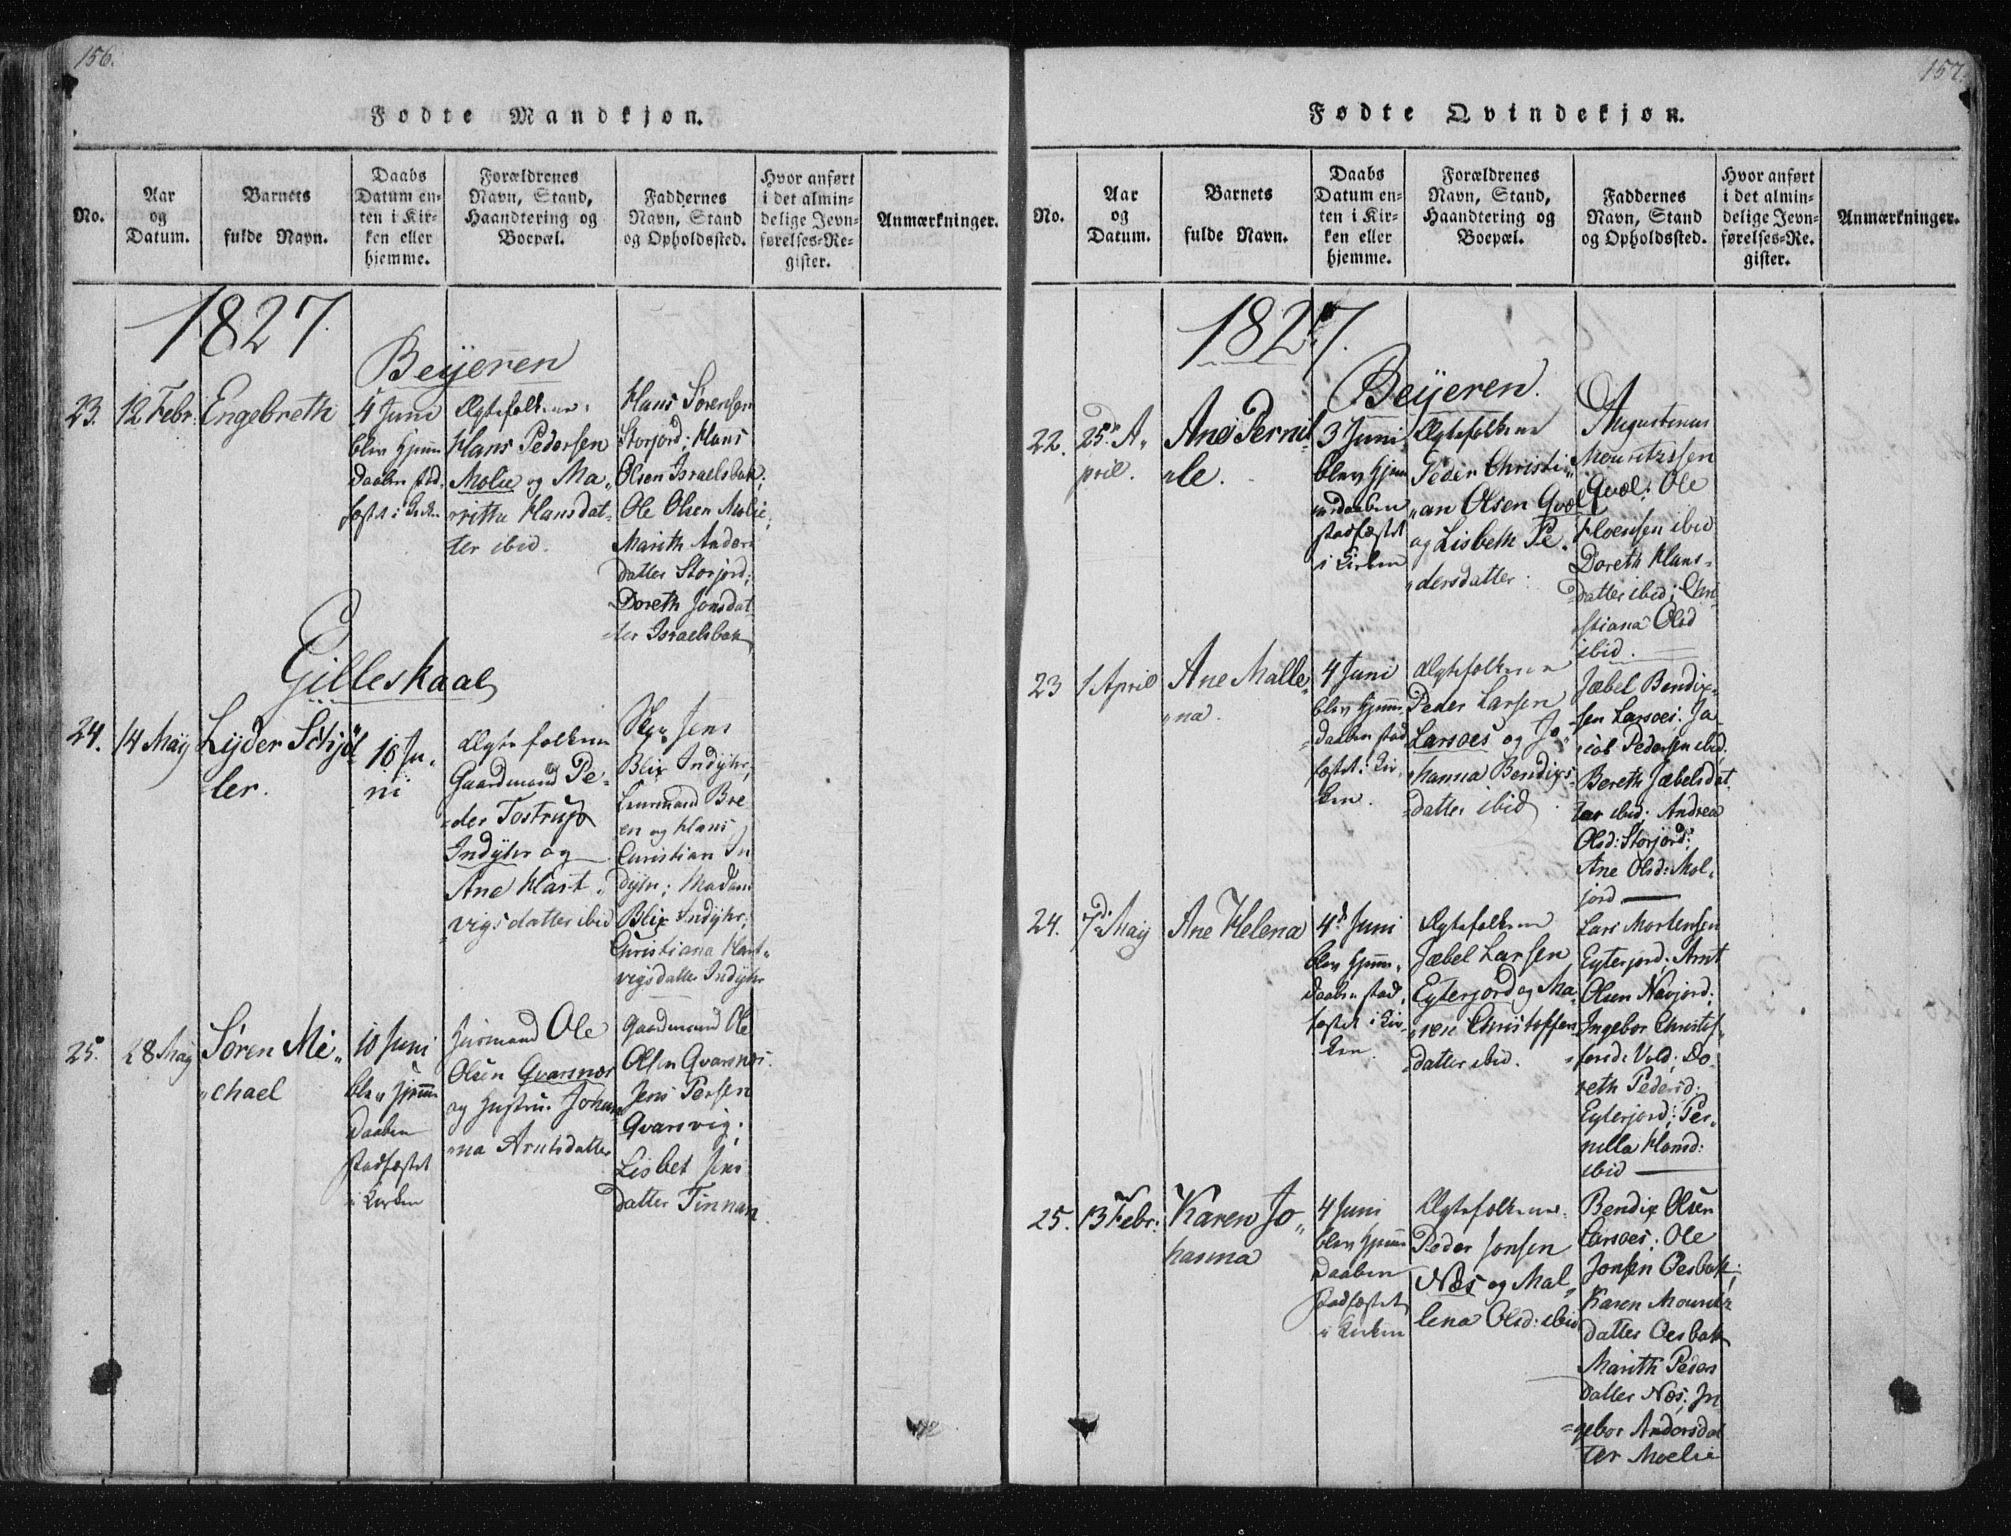 156.
Fødte Mandkjøn.
No.
Aar
og
Datum.
Barnets
fulde Navn.
Daabs
Datum en-
ten i Kir-
ken eller
hjemme.
Forældrenes
Navn, Stand,
Haandtering og
Boepæl.
Faddernes
Navn, Stand
og Opholdssted.
Hvor anført
i det almin-
delige Jevn-
førelses-Re-
gister.
Anmærkninger.
1827.
Beyeren
23.
12 Febr:
Engebreth
4 Juni
blev hjemme
Daaben stad
fæstet i Kirken
Ægtefolkene
Hans Pedersen
Molie og Ma„
ritta Hansdat-
ter ibid.
Hans Sørensen
Storjord; Hans
Olsen Israelsbak;
Ole Olsen Molie;
Marith Anders
datter Storjord;
Doreth Jonsdat
ter Israelsbak
Gilleskaal
24.
14 May
Lyder Schjøl
ler.
10 Ju„
ni
Ægtefolkene
Gaardmand Pe-
der Tostrup
Indyhr og
Ane Hart„
vigsdatter ibid
Jens
Blix Indyhr;
Leensmand Bre
en og Hans
Christian In
dyhr; Madam
Blix Indyhr;
Christiana Hart„
vigsdatter Indyhr
25.
28 May
Søren Mi„
„chael
10 Juni
blev hjemme
Daaben
stadfæstet
i Kirken
Huusmand Ole
Olsen Qvarsnæs
og Hustru Johan
„na Arntsdatter
Gaardmand Ole
Olsen Qvarsnæs.
Jens Persen
Qvarsvig;
Lisbet Jens
datter Finnari
157.
Fødte Qvindekjøn.
No.
Aar
og
Datum.
Barnets
fulde Navn.
Daabs
Datum en-
ten i Kir-
ken eller
hjemme.
Forældrenes
Navn, Stand,
Haandtering og
Boepæl.
Faddernes
Navn, Stand
og Opholdssted.
Hvor anført
i det almin-
delige Jevn-
førelses-Re-
gister.
Anmærkninger.
1827.
Beyeren.
22.
25de A„
pril.
Ane Pernil
„le.
3 Juni
blev hjem
medaaben
stadfæstet
i Kirken
Ægtefolkene
Peder Christi„
„an Olsen Qvæl
og Lisbeth Pe„
„dersdatter.
Augustinus
Mouritzsen
Qvæl; Ole
Hoensen ibid
Doreth Hans-
datter ibid; Chri
„stiana Olsd
ibid.
23
1 April
Ane Malle„
„na.
4 Juni
blev hjemme
daaben stad
fæstet i Kir„
ken.
Ægtefolkene
Peder Larsen
Larsoes og Jo„
„hanna Bendixs-
datter ibid
Jæbel Bendix-
sen Larsoes; Ja
„cob Pedersen ibid.
Bereth Jæbelsdat
ter ibid; Andrea
Olsd: Storjord:
Ane Olsd: Mol„
jord
24.
7de May
Ane Helena
4de Juni
blev hjemme
daaben stad
fæstet i Kir„
ken
Ægtefolkene
Jæbel Larsen
Eyterjord og Ma
„ren Christoffers
datter ibid.
Lars Mortensen
Eyterjord; Arnt
Olsen Navjord;
Ingebor Christof
fersd: Vold; Do„
reth Pedersd:
Eyterjord; Per„
nilla Hansd:
ibid
25.
13 Febr:
Karen Jo„
hanna
4 Juni
blev hjemme
Daaben
stadfæstet
i Kirken
Ægtefolkene
Peder Jonsen
Næs og Mal„
lena Olsd: ibid
Bendix Olsen
Larsoes; Ole
Jonsen Oesbak;
Karen Mouritz
datter Oesbak
Marith Peders
datter Næs; In
„gebor Andersdat
ter Moelie